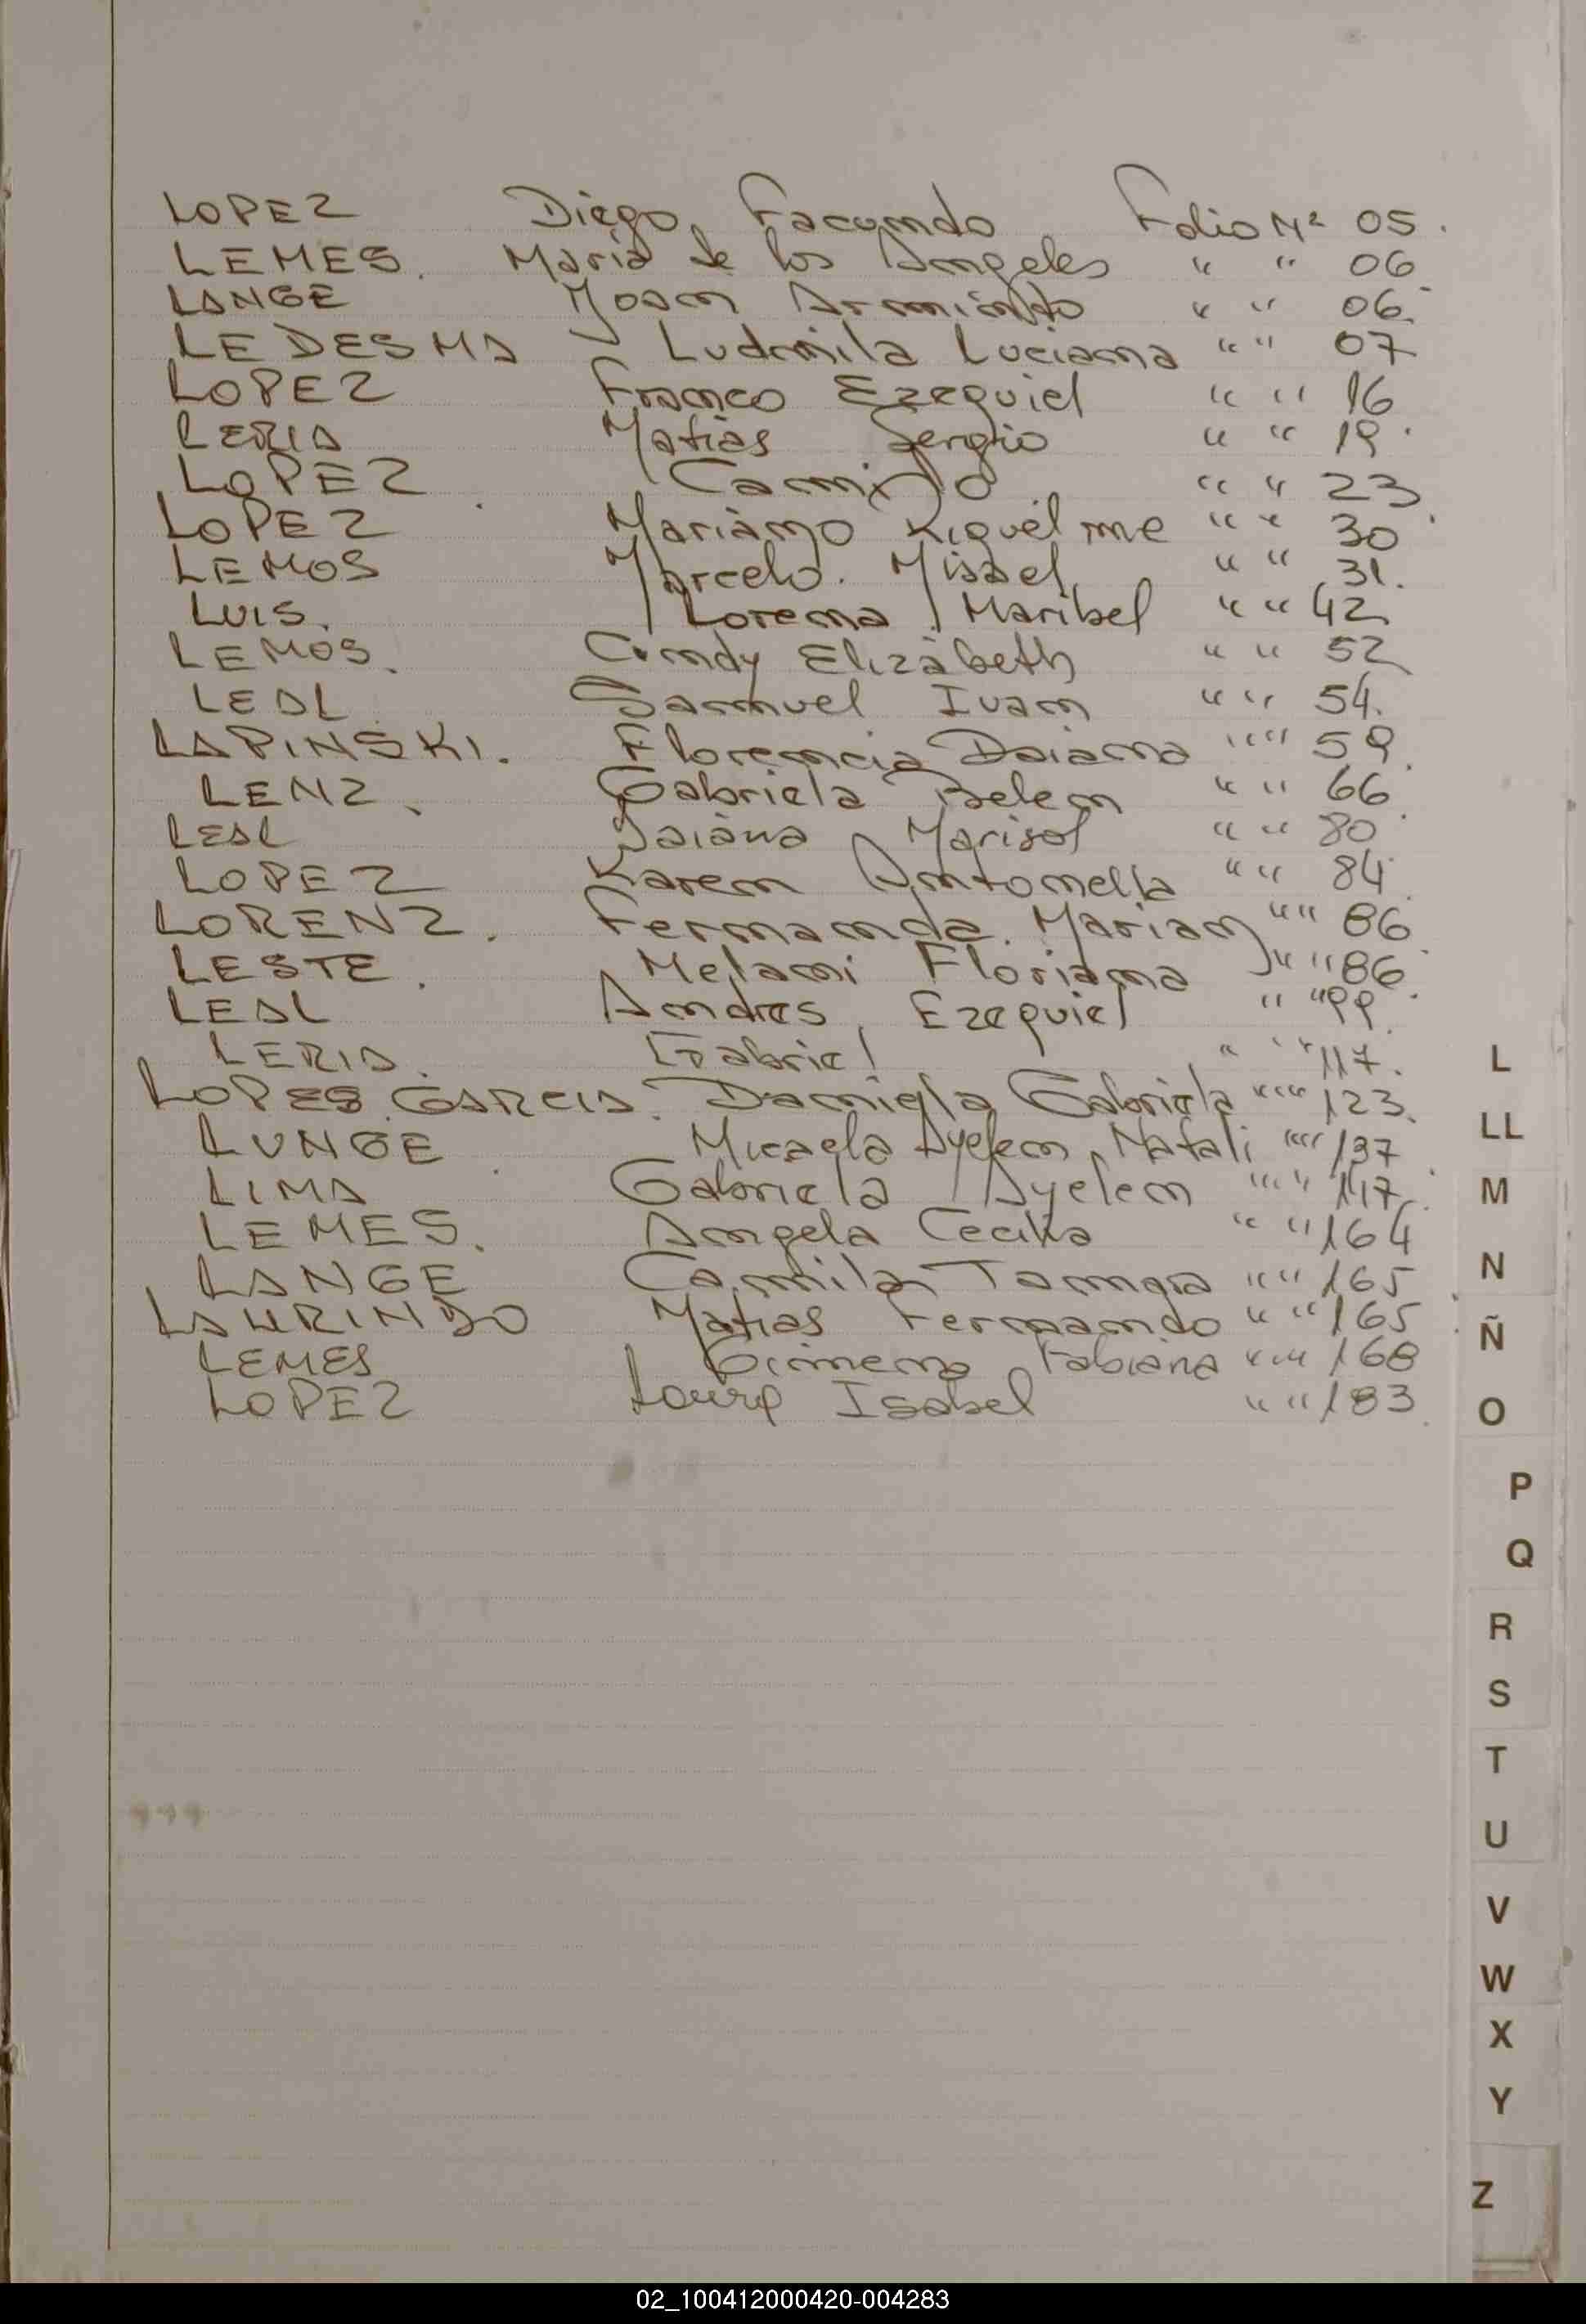 LOPEZ Diego Facundo Folio Nº 05.
LEMES. Maria de los Angeles " " 06
LANGE Joan Armindo " " 06.
LEDESMA Ludmila Luciana " " 07
LOPEZ Franco Ezequiel " " 16
LERIA Matias Sergio " " 19
LOPEZ Camilo " " 23
LOPEZ Mariano Riquelme " " 30
LEMOS Marcelo. Misael " " 31.
LUIS. Lorena Maribel " " 42
LEMOS. Cindy Elizabeth " " 52
LEAL Samuel Ivan " " 54.
LAPINSKI. Florencia Daiana " " 59
LENZ. Gabriela Belen " " 66
LEAL Daiana Marisol " " 80
LOPEZ Karen Antonella " " 84
LORENZ. Fernanda. Marian " " 86
LESTE. Melani Floriana " " 86
LEAL Andres, Ezequiel " " 99
LERIA. Gabriel " " 117.
LOPES GARCIA. Daniela Gabriela " " 123.
LUNGE Micaela Ayelen Natali " " 137
LIMA Gabriela Ayelen " "
LEMES. Angela Cecilia " " 164
LANGE Camila Tamara " " 165
LAURINDO Matias Fernando " " 165
LEMES Gimena Fabiana " " 168
LOPEZ Laura Isabel " " 183
L
LL
M
N
Ñ
O
P
Q
R
S
T
U
V
W
X
Y
Z
02_100412000420-004283